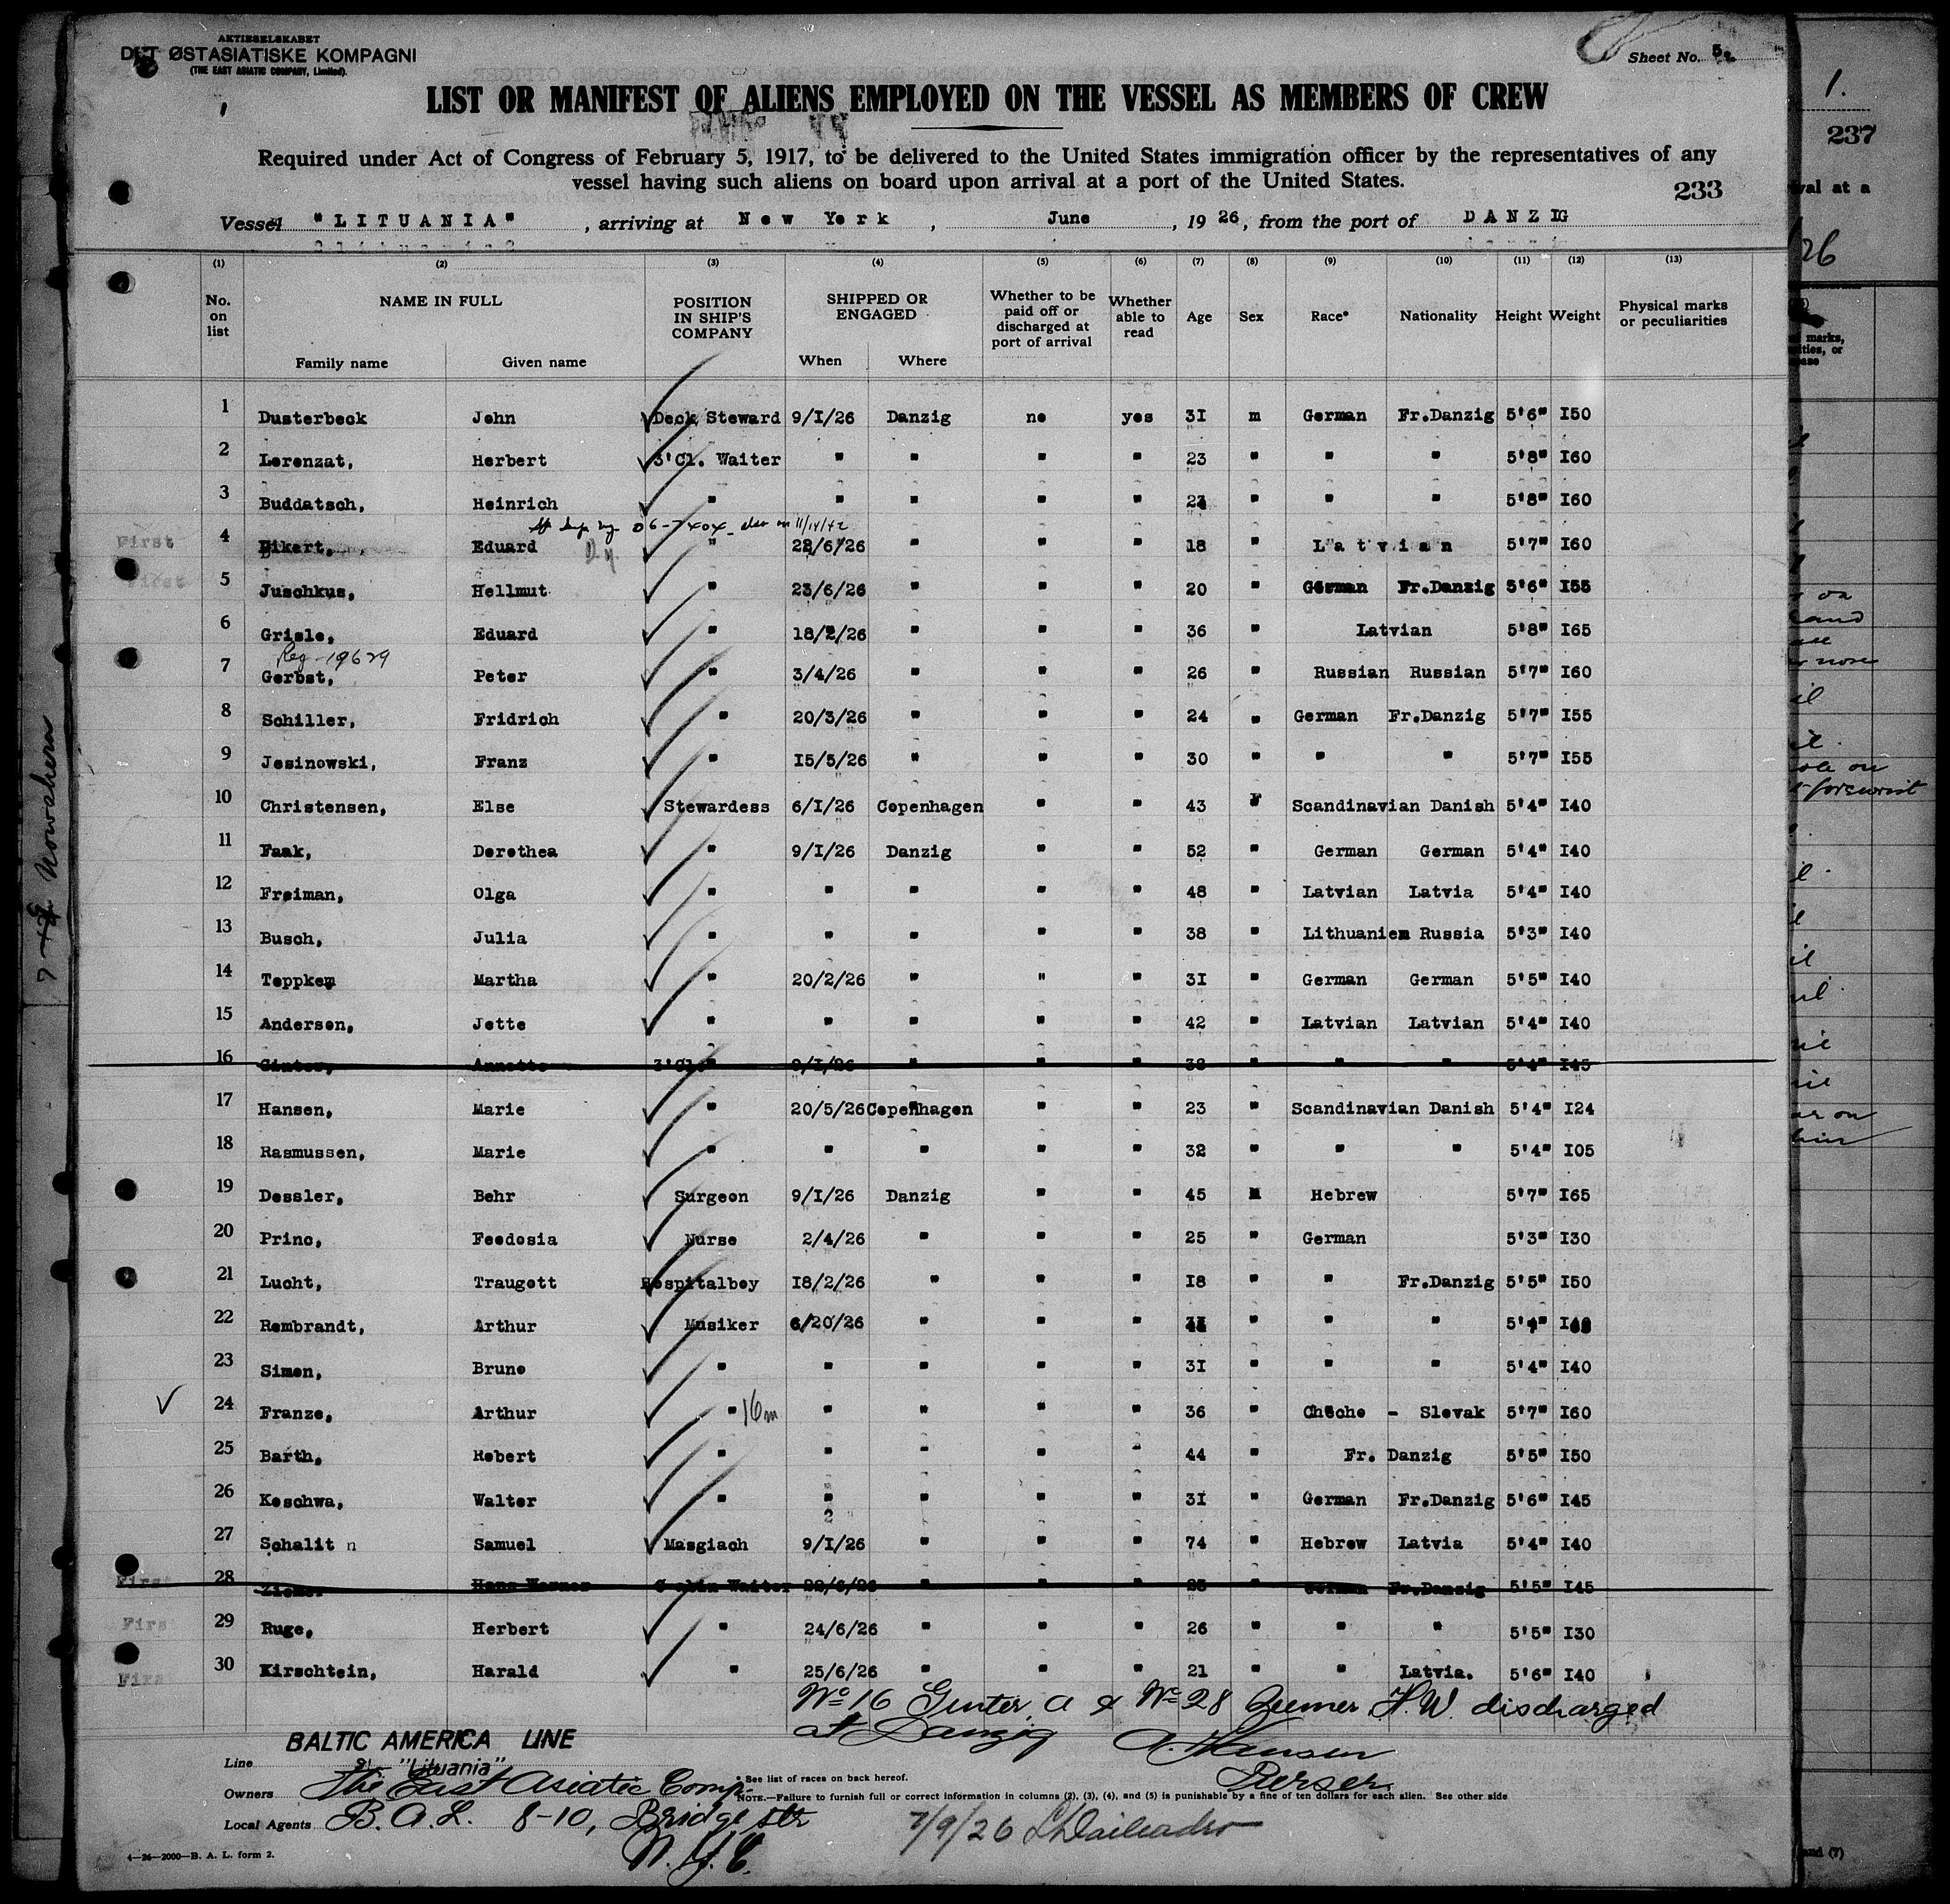 AKTIESELSKABET
DET ØSTASIATISKE KOMPAGNI
(THE EAST ASIATIC COMPANY, Limited).
Sheet No. 5
LIST OR MANIFEST OF ALIENS EMPLOYED ON THE VESSEL AS MEMBERS OF CREW
1.
237
Required under Act of Congress of February 5, 1917, to be delivered to the United States immigration officer by the representatives of any
vessel having such aliens on board upon arrival at a port of the United States.
233
val at a
Vessel "LITUANIA", arriving at New York, June, 1926, from the port of DANZIG
26
(1) (2) (3) (4) (5) (6) (7) (8) (9) (10) (11) (12) (13)
No. on list NAME IN FULL Family name Given name POSITION IN SHIP'S COMPANY SHIPPED OR ENGAGED When Where Whether to be paid off or discharged at port of arrival Whether able to read Age Sex Race* Nationality Height Weight Physical marks or peculiarities
1 Dusterbeck John Deck Steward 9/I/26 Danzig no yes 3I m German Fr.Danzig 5'6" I50
2 Lorenzat, Herbert 3'Cl. Waiter " " " " 23 " " " 5'8" I60
3 Buddatsch, Heinrich " " " " " 24 " " " 5'8" I60
11/14/42
First 4 Eikert, Eduard " 28/6/26 " " " 18 " Latvian 5'7" I60
First 5 Juschkus, Hellmut " 23/6/26 " " " 20 " German Fr.Danzig 5'6" I55
6 Grisle, Eduard " 18/2/26 " " " 36 " Latvian 5'8" I65
Reg-19629
7 Gerbst, Peter " 3/4/26 " " " 26 " Russian Russian 5'7" I60
8 Schiller, Fridrich " 20/3/26 " " " 24 " German Fr.Danzig 5'7" I55
9 Jesinowski, Franz " I5/5/26 " " " 30 " " " 5'7" I55
10 Christensen, Else Stewardess 6/I/26 Copenhagen " " 43 F Scandinavian Danish 5'4" I40
11 Faak, Dorothea " 9/I/26 Danzig " " 52 " German German 5'4" I40
12 Freiman, Olga " " " " " 48 " Latvian Latvia 5'4" I40
13 Busch, Julia " " " " " 38 " Lithuanien Russia 5'3" I40
14 Teppkem Martha " 20/2/26 " " " 3I " German German 5'5" I40
15 Andersen, Jette " " " " " 42 " Latvian Latvian 5'4" I40
16 Ginter, Annette 3'Cl." 9/I/26 " " " 38 " " " 5'4" I45
17 Hansen, Marie " 20/5/26 Copenhagen " " 23 " Scandinavian Danish 5'4" I24
18 Rasmussen, Marie " " " " " 32 " " " 5'4" I05
19 Dessler, Behr Surgeon 9/I/26 Danzig " " 45 M Hebrew 5'7" I65
20 Princ, Feodosia Nurse 2/4/26 " " " 25 " German 5'3" I30
21 Lucht, Traugott Hospitalboy I8/2/26 " " " I8 " " Fr.Danzig 5'5" I50
22 Rembrandt, Arthur Musiker 6/20/26 " " " " " " 5'4"
23 Simon, Bruno " " " " " 3I " " " 5'4" I40
24 Franze, Arthur " 16m " " " " 36 " Checho - Slovak 5'7" I60
25 Barth, Robert " " " " " 44 " Fr. Danzig 5'5" I50
26 Koschwa, Walter " " " " " 3I " German Fr.Danzig 5'6" I45
27 Schalit n Samuel Masgiach 9/I/26 " " " 74 " Hebrew Latvia 5'4" I40
First 28 Ziemer Hans Werner Cabin Waiter 22/6/26 " " " 23 " German Fr.Danzig 5'5" I45
Firs 29 Ruge, Herbert " 24/6/26 " " " 26 " " " 5'5" I30
First 30 Kirschtein, Harald " 25/6/26 " " " 21 " " Latvia. 5'6" I40
No 16 Ginter, A & No 28 Ziemer H.W. discharged
at Danzig A. Hansen
Purser
BALTIC AMERICA LINE
Line "Lituania"
* See list of races on back hereof.
Owners The East Asiatic Comp.
NOTE.—Failure to furnish full or correct information in columns (2), (3), (4), and (5) is punishable by a fine of ten dollars for each alien. See other side
Local Agents B.A.L. 8-10, Bridge Str
N.Y.C.
7/9/26
4—26—2000—B. A. L. form 2.
and (7)